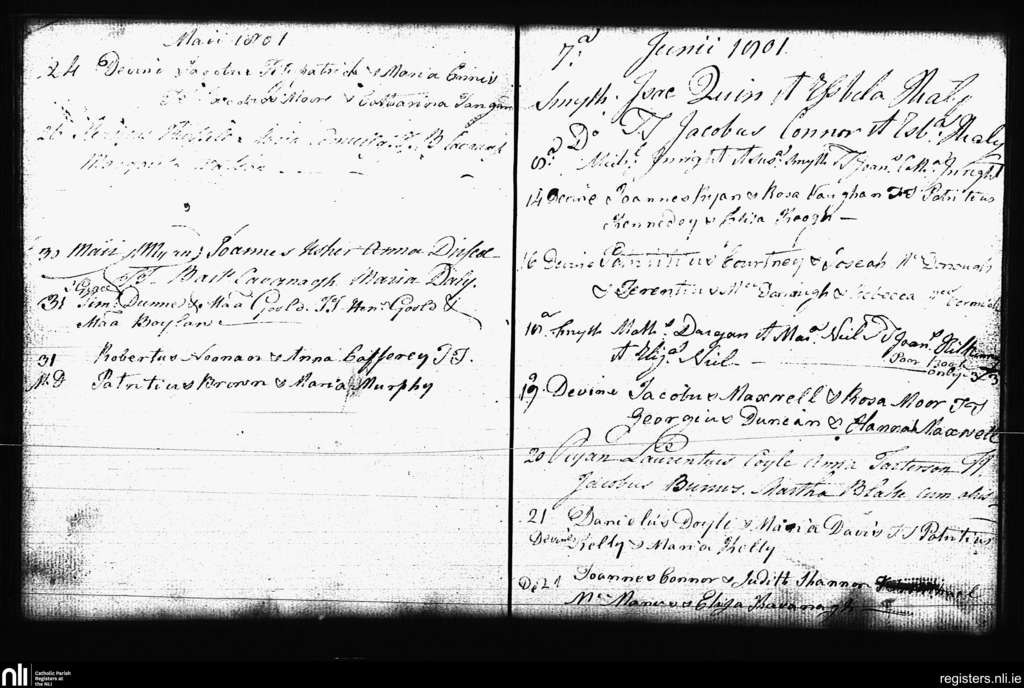 Maii 1801
24 Devine Jacobus Fitzpatrick & Maria Ennis
TT Moore & Catharina
26
Margarita
30 Maii Joannes Usher Anna Driscol
TT Bart Cavanagh Maria Daly.
Grace
31 Jim: Dunne & Maa Goold TT Hen: Goold &
Maa Boylan
31 Robertus Noonan & Anna Cafferey TT
N. D Patritius Brown & Maria Murphy
7.a Junii 1801.
Smyth. Isac Quin et Essbela Healy
TT Jacobus Connor et Esb.a Healy
8.a Do Mich: Inright et Sus.a Smyth TT Joan.s Cath.a Inright
14 Devine Joannes Ryan & Rosa Vaughan TT Patritius
Kennedy & Eliza Keogh
16 Devine Patritius Courtney & Mc Donough
& Terentius Mc Donough & Rebecca
18.a Smyth Math.s Dargan et Mar.a Niel TT Joan.s
et Eliz.a Niel
Poor
only
19 Devine Jacobus Maxwell & Rosa Moor TT
Georgius Duncan & Hannah Maxwell
20 Ryan Laurentius Coyle Anna Tatterson TT
Jacobus Burns. Martha Blake cum aliis
21 Daniel Doyle & Maria Davis TT Patritius
Devine Kelly & Maria Kelly
D. 21 Joannes Connor & Judith Shannon
Mc Manus & Eliza Kavanagh
nli
Catholic Parish
Registers at
the NLI
registers.nli.ie